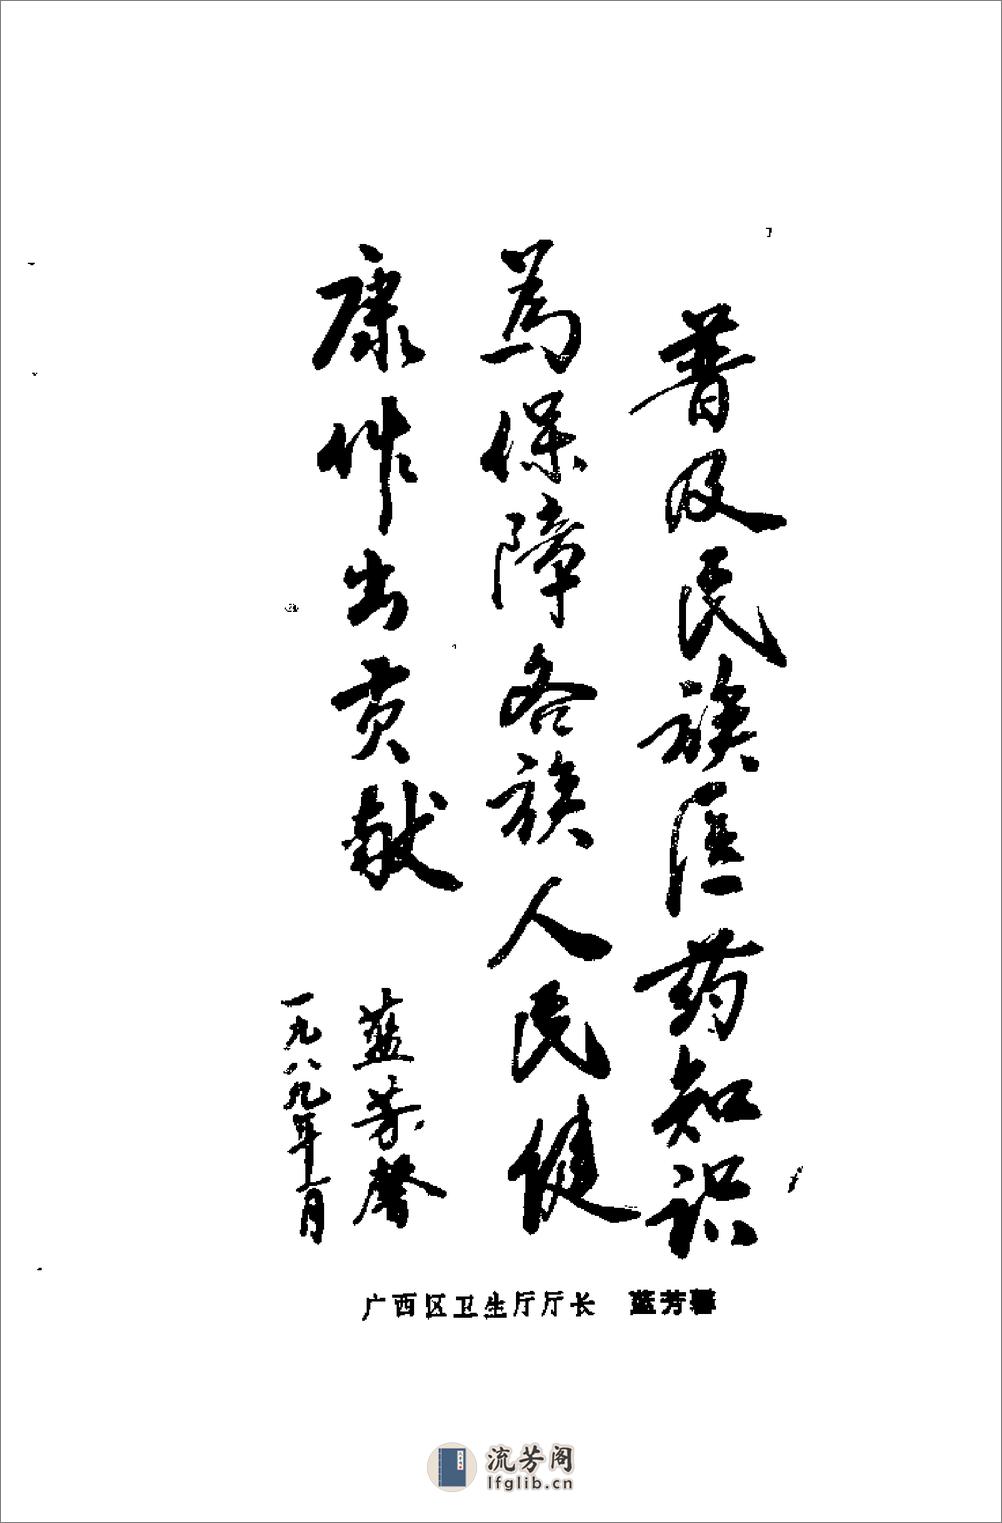 普及民族医药知识
为保障各族人民健
康作出贡献
蓝芳馨
一九八九年一月
广西区卫生厅厅长 蓝芳馨
流芳阁
lfglib.cn